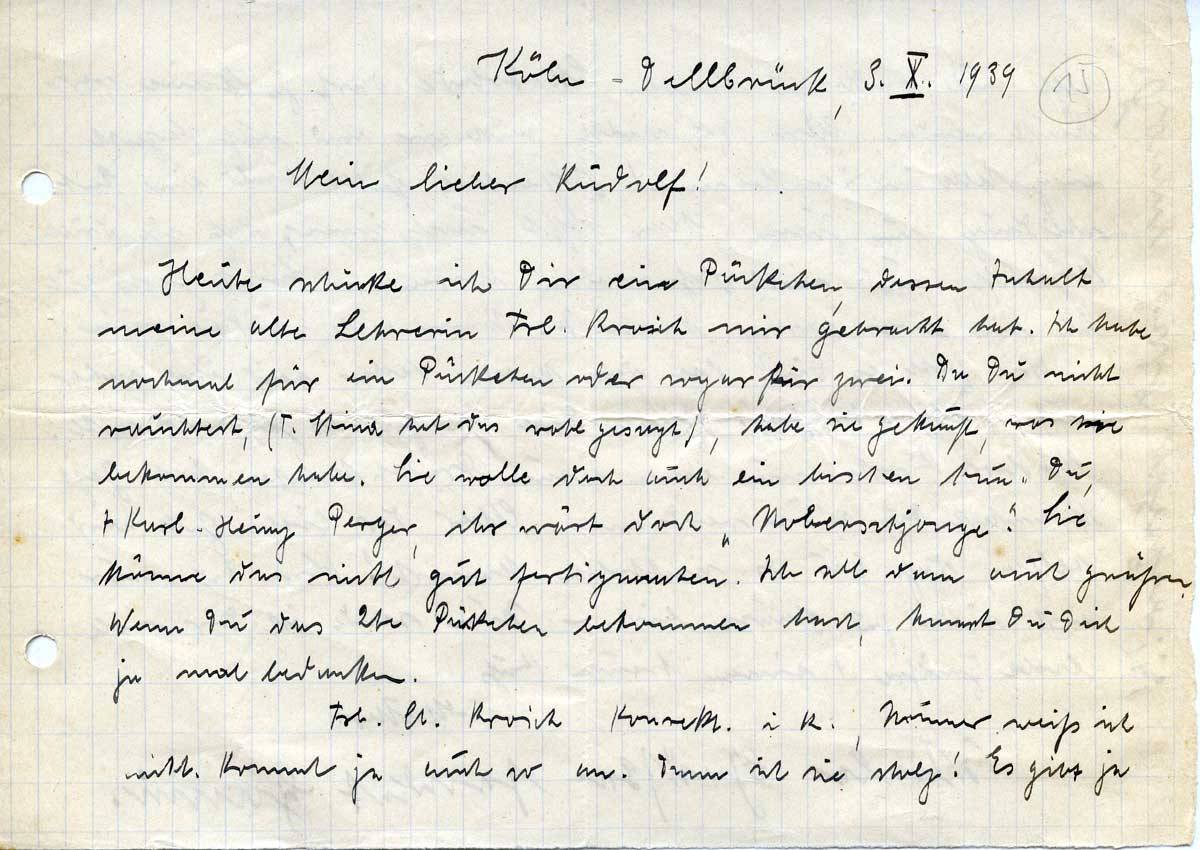 Köln - Dellbrück, 3. X. 1939
Mein lieber Rudolf!
Heute schicke ich Dir ein Päckchen, dessen Inhalt
meine alte Lehrerin Frl. Krosch mir gebracht hat. Ich habe
nochmal für ein Päckchen oder sogar für zwei. Da Du nicht
rauchtest, (T. Stina hat das wohl gesagt), habe sie gekauft, was sie
bekommen habe. Sie wolle doch auch ein bischen tun. Du,
+ Karl-Heinz Perger, ihr wärt doch „Noberschtjonge“. Sie
könne das nicht gut fertigmachen. Ich soll dann auch grüßen.
Wenn Du das 2te Päckchen bekommen hast, kannst Du Dich
ja mal bedanken.
Frl. Krosch Konrekt. i R., Nummer weiß ich
nicht. Kommt ja auch so an. Dann ist sie stolz! Es gibt ja